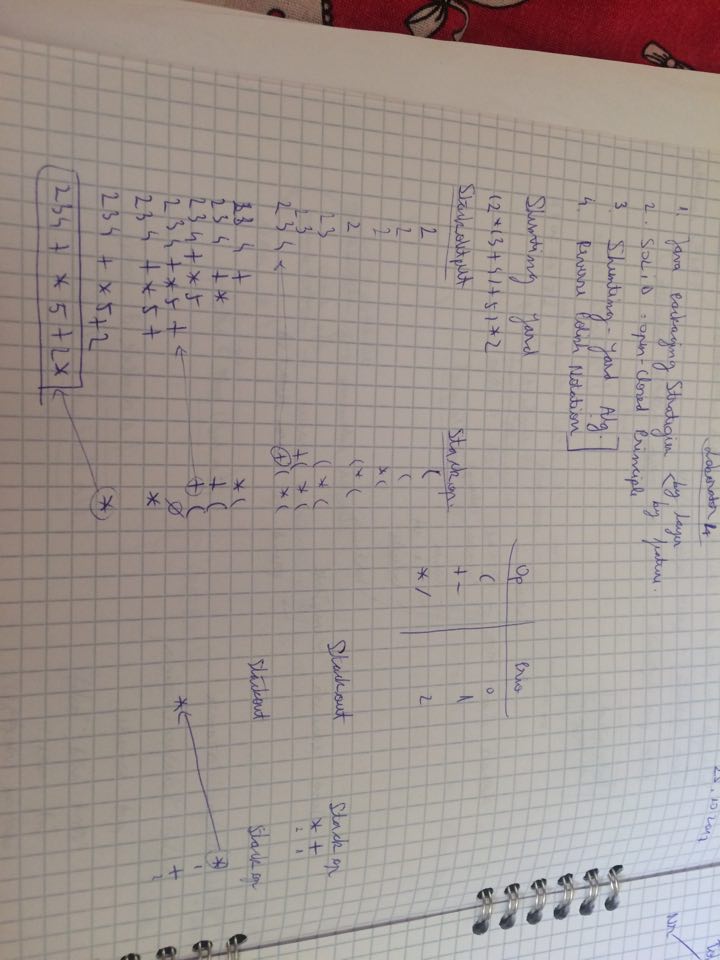 Laborator 4
25.10.2017
1. Java Packaging Strategies < by layer
by feature.
2. SOLID : open-closed Principle
3. Shunting-yard Alg.
4. Reverse Polish Notation
Shunting yard
(2*(3+4)+5)*2
Op Prio
( 0
+ - 1
* / 2
Stackoutput Stack op.
2 (
2 (
2 *(
2 (*(
23 (*(
23 +(*(
234 +(*(
234 + *(
234 +* +(
234+*5 +(
234+*5+ ∅
234+*5+ *
234+*5+2 *
234+*5+2*
Stackout Stack op
* +
2 1
Stackout Stack op
*
1
* +
2
Nr